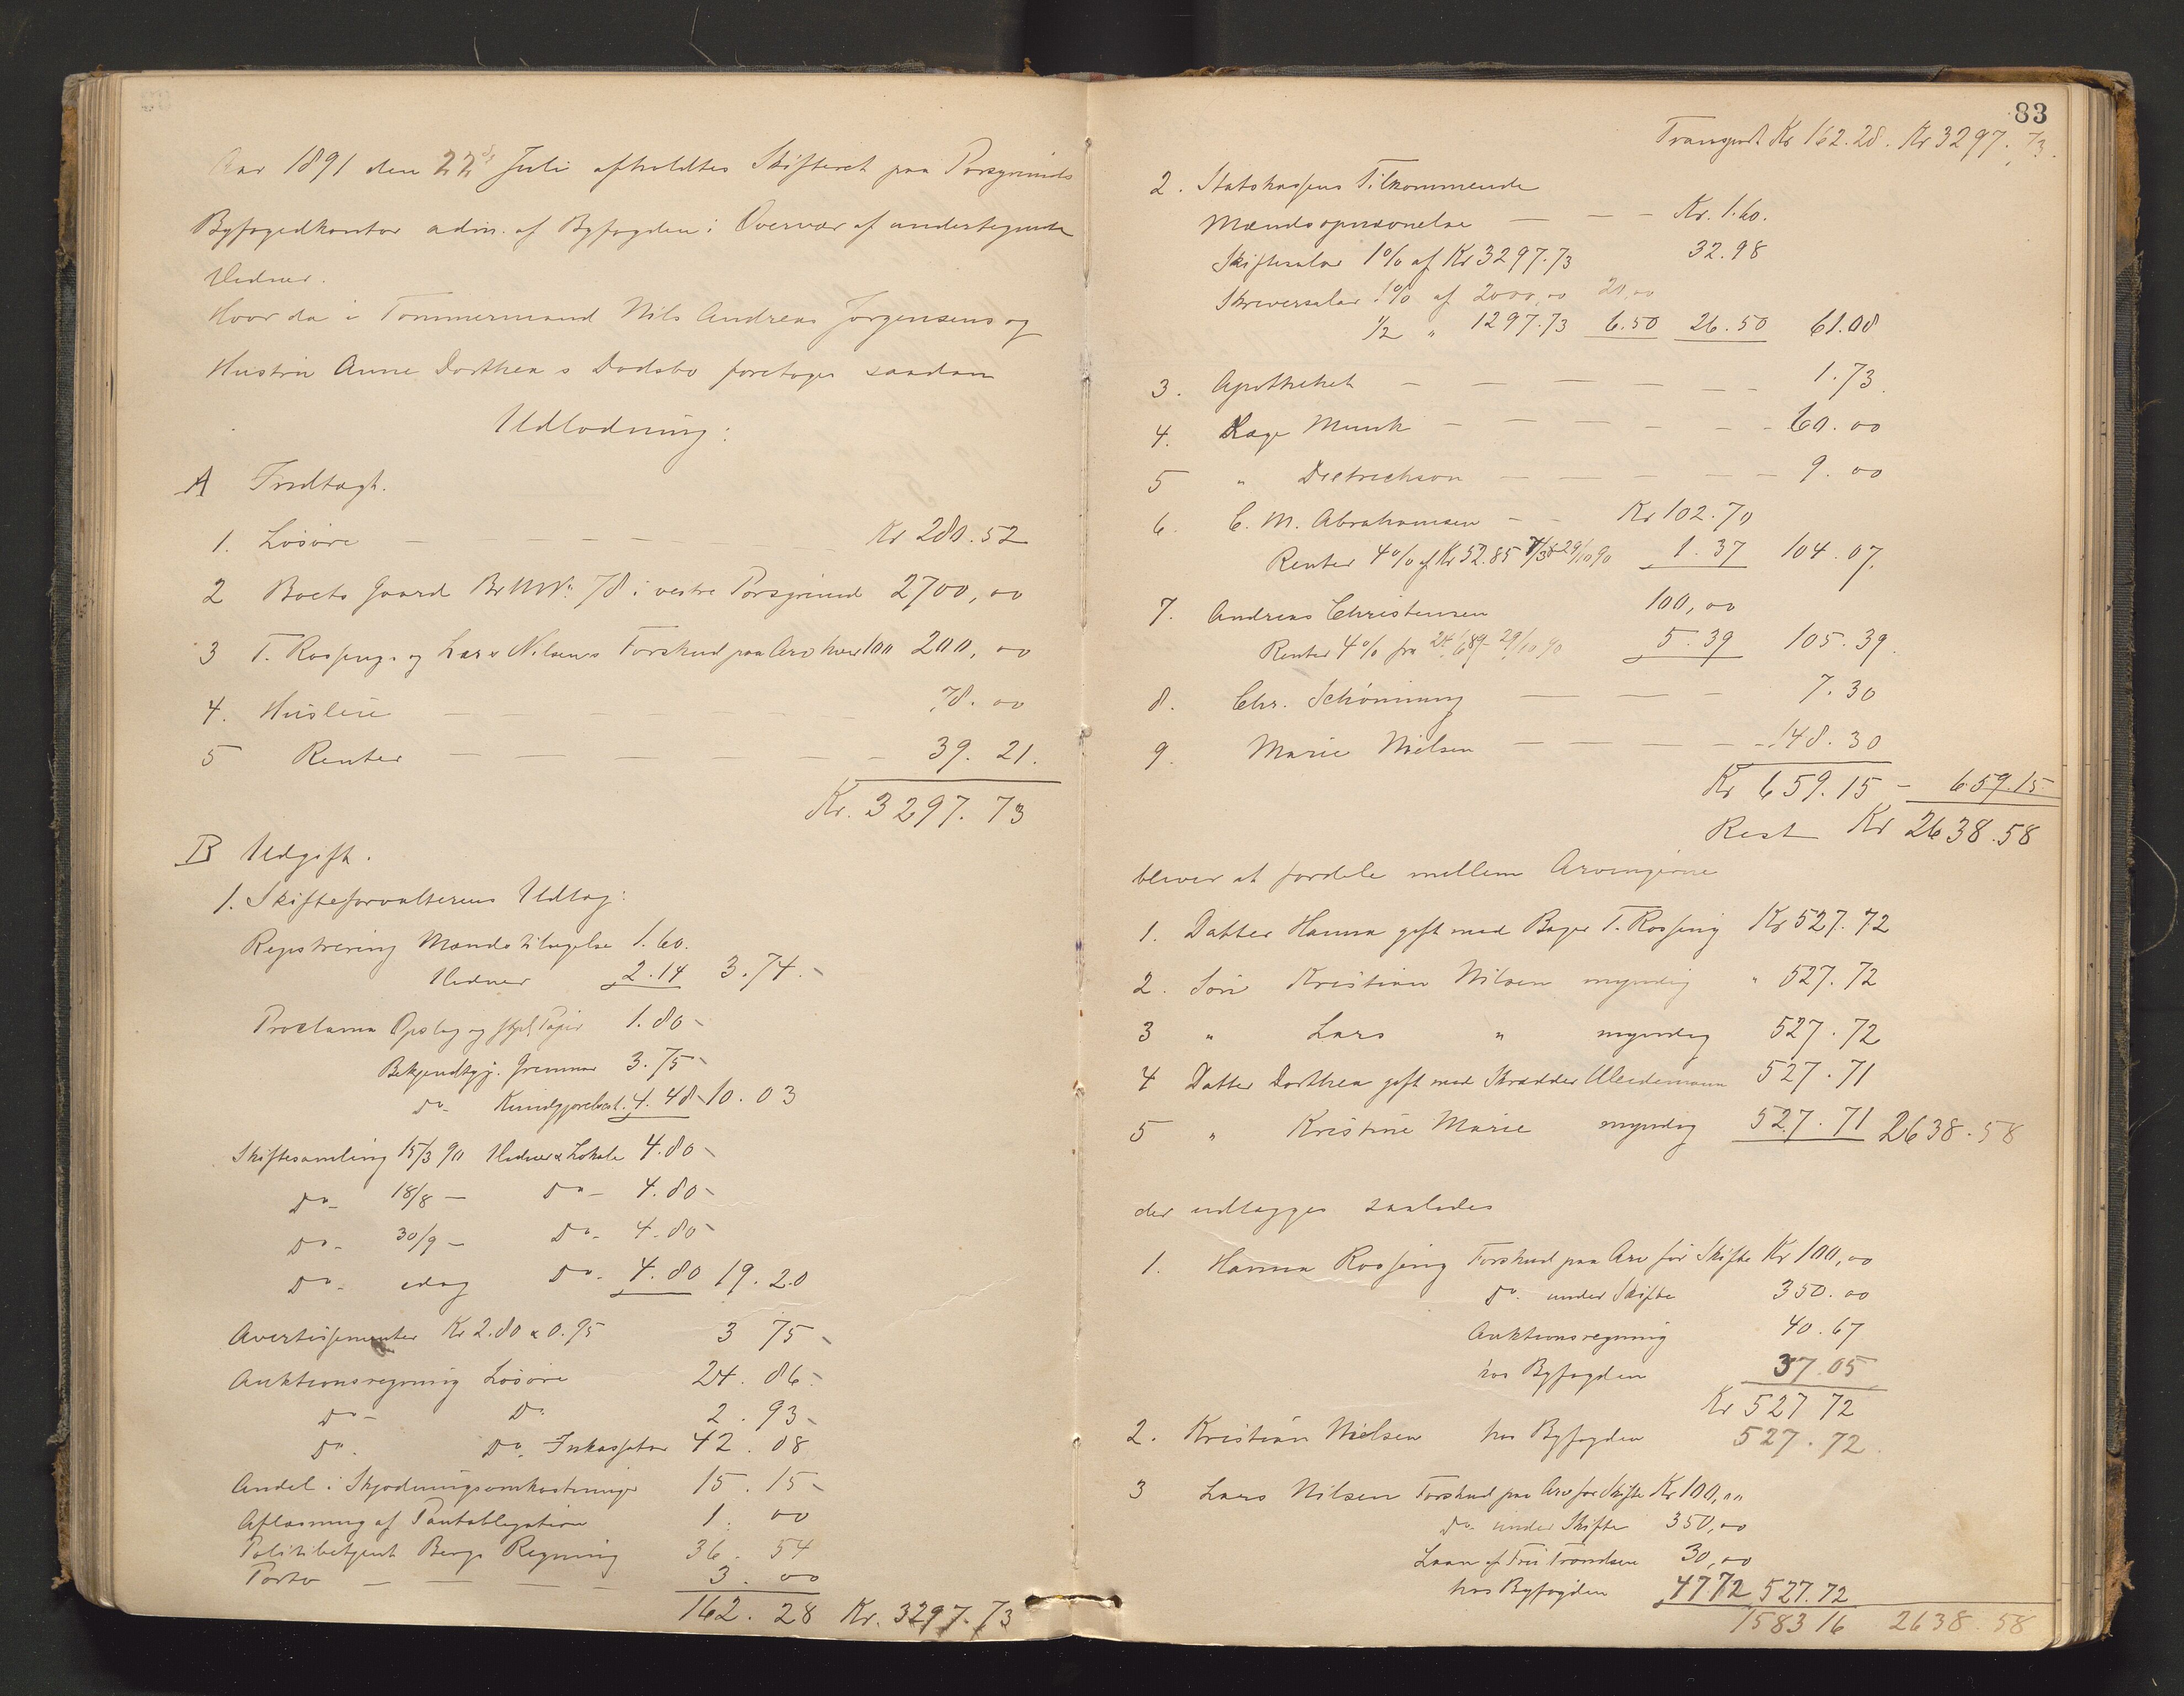 Aar 1891 den 22de Juli afholdtes Skifteret paa Porsgrunds
Byfogedkontor adm. af Byfogden i Overvær af undertegnede
Vidner.
Hvorda i Tømmermand Nils Andreas Jørgensens og
Hustru Anne Dorthea s Dødsbo foretoges saadan
Udlodning:
A Indtægt.
1. Løsøre — — — — — — Kr 280.52
2 Boets Gaard Br No 78 i vestre Porsgrund 2700,00
3 T. Rosfings og Lars Nilsens Forskud paa Arv hver 100 200,00
4. Husleie — — — — — 78.00
5 Renter — — — — — — 39.21.
Kr. 3297.73
B Udgift.
1. Skifteforvalterens Udlæg:
Registrering Mænds tilsigelse 1.60.
Vidner 2.14 3.74.-
Proclama Opslag og stpl. Papir 1.80-
Bekjendtgj. Grenmar 3.75-
Do- Kundgjørelsest. 4.48- 10.03
Skiftesamling 15/3 90 Vidner & Lokale 4.80-
Do- 18/8 — Do- 4.80-
Do- 30/9 — Do- 4.80-
Do- idag Do- 4.80 19.20
Avertissementer Kr 2.80 & 0.95 3 75-
Auktionsregning Løsøre 24.86-
Do- Do 2.93-
Do. Do. Inkassator 42.08
Andel i Skjødningsomkostninger 15.15-
Aflæsning af Pantobligation 1.00
Politibetjent Bergs Regning 36.54
Porto — — — — 3.00
162.28 Kr. 3297.73
83
Transport Kr 162.28. Kr 3297.73.
2. Statskassens Tilkommende
Mændsopnævnelse — — — Kr. 1.60.
Skiftesalær 1% af Kr 3297.73 32.98
Skriversalær 1% af 2000,00 20,00
1/2 " 1297.73 6.50 26.50 61.08
3. Apotheket — — — — — — 1.73.
4. Læge Munk — — — — — — 60.00
5 " Dietrichson — — — — — 9.00
6. C. M. Abrahamsen — — Kr 102.70
Renter 4% af Kr 52.85 29/10 90 1.37 104.07.
7. Andreas Christensen 100,00
Renter 4% fra 24/6 89- 29/10 90 5.39 105.39.
8. Chr. Schönning — — — 7.30
9. Marie Nielsen — — — — — 148.30
Kr 659.15 — 659.15
Rest Kr 2638.58
bliver at fordele mellem Arvingerne
1. Datter Hanna gift med Bager T. Rosfing Kr 527.72
2. Søn Kristian Nilsen myndig " 527.72
3 " Lars " myndig 527.72
4 Datter Dorthea gift med Skrædder Weidemann 527.71
5 " Kristine Marie myndig 527.71 2638.58
der udlægges saaledes
1. Hanna Rosfing Forskud paa Arv før Skifte Kr 100,00
Do. under Skifte 350.00
Auktionsregning 40.67
hos Byfogden 37.05
Kr 527 72
2. Kristian Nielsen hos Byfogden 527.72.
3 Lars Nilsen Forskud paa Arv før Skifte Kr 100,00
Do. under Skifte 350,00
Laan af Fru Trondsen 30,00
hos Byfogden 47.72 527.72
1583 16 2638.58